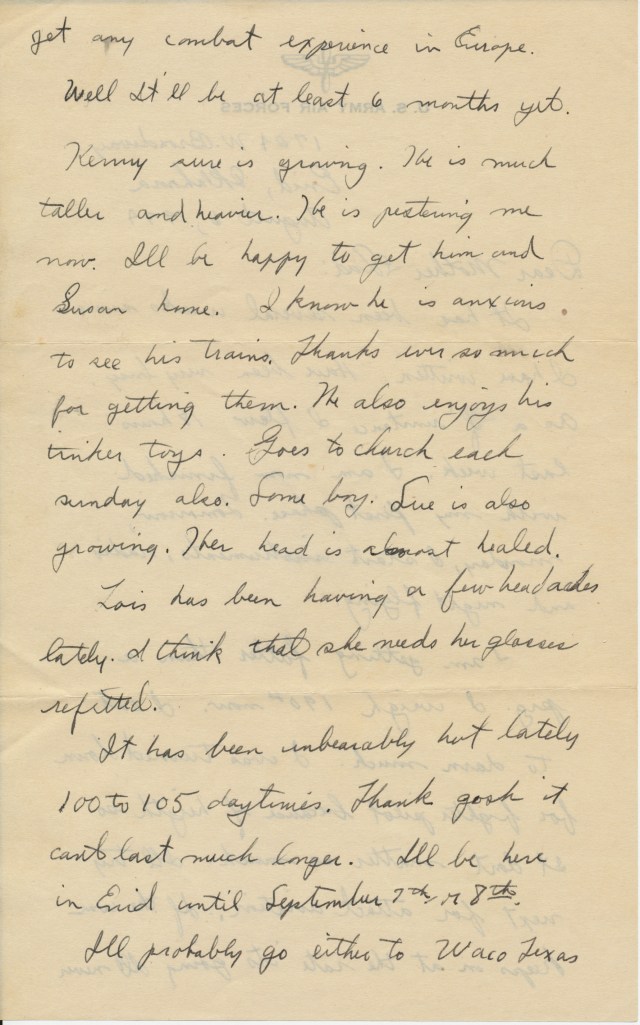 get any combat experience in Europe.
Well It'll be at least 6 months yet.
Kenny sure is growing. He is much
taller and heavier. He is pestering me
now. I'll be happy to get him and
Susan home. I know he is anxious
to see his trains. Thanks ever so much
for getting them. He also enjoys his
tinker toys. Goes to church each
sunday also. Some boy. Sue is also
growing. Her head is almost healed.
Lois has been having a few headaches
lately. I think that she needs her glasses
refitted.
It has been unbearably hot lately
100 to 105 daytimes. Thank gosh it
cant last much longer. I'll be here
in Enid until September 7th or 8th.
I'll probably go either to Waco Texas